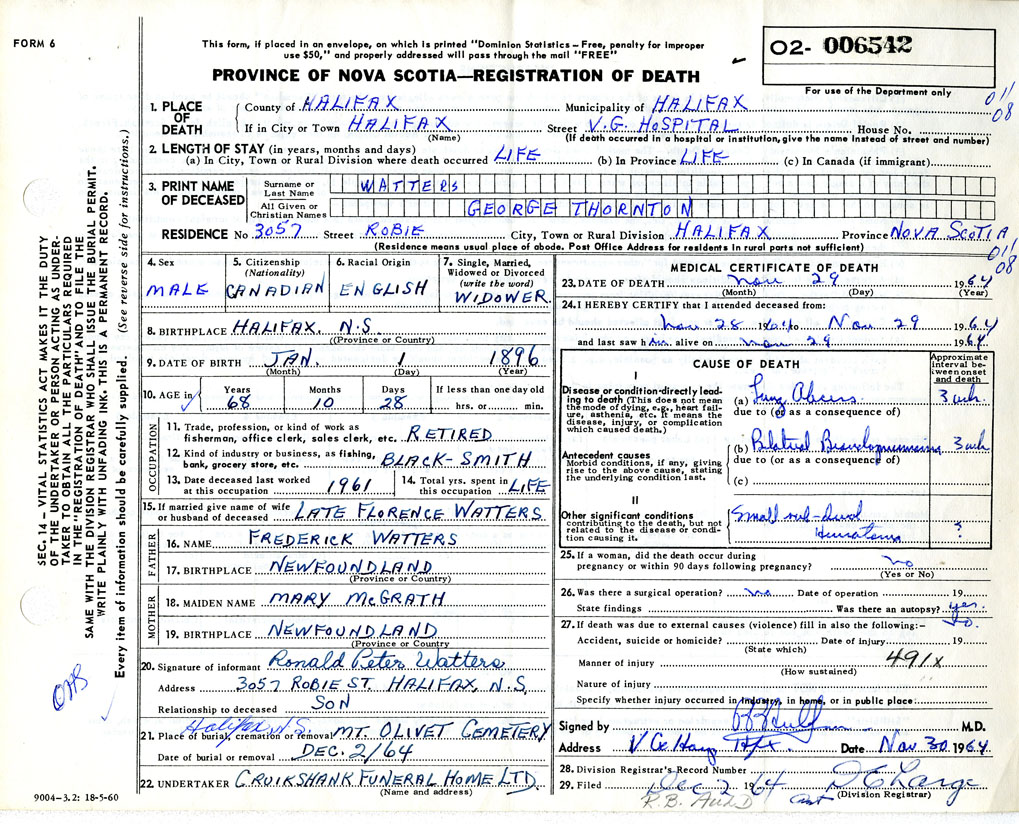 FORM 6
This form, if placed in an envelope, on which is printed "Dominion Statistics – Free, penalty for improper
use $50," and properly addressed will pass through the mail "FREE"
02- 006542
For use of the Department only
PROVINCE OF NOVA SCOTIA—REGISTRATION OF DEATH
011
08
1. PLACE OF DEATH
County of HALIFAX Municipality of HALIFAX
If in City or Town HALIFAX Street V.G. HOSPITAL House No.
(Name) (If death occurred in a hospital or institution, give the name instead of street and number)
2. LENGTH OF STAY (in years, months and days)
(a) In City, Town or Rural Division where death occurred LIFE (b) In Province LIFE (c) In Canada (if immigrant)
3. PRINT NAME OF DECEASED
Surname or Last Name WATTERS
All Given or Christian Names GEORGE THORNTON
RESIDENCE No 3057 Street ROBIE City, Town or Rural Division HALIFAX Province NOVA SCOTIA
(Residence means usual place of abode. Post Office Address for residents in rural parts not sufficient)
011
08
4. Sex MALE
5. Citizenship (Nationality) CANADIAN
6. Racial Origin ENGLISH
7. Single, Married, Widowed or Divorced (write the word) WIDOWER
8. BIRTHPLACE HALIFAX, N.S.
(Province or Country)
9. DATE OF BIRTH JAN. 1 1896
(Month) (Day) (Year)
10. AGE in Years 68 Months 10 Days 28 If less than one day old hrs. or min.
OCCUPATION
11. Trade, profession, or kind of work as
fisherman, office clerk, sales clerk, etc. RETIRED
12. Kind of industry or business, as fishing,
bank, grocery store, etc. BLACK-SMITH
13. Date deceased last worked at this occupation 1961
14. Total yrs. spent in this occupation LIFE
15. If married give name of wife
or husband of deceased LATE FLORENCE WATTERS
FATHER
16. NAME FREDERICK WATTERS
17. BIRTHPLACE NEWFOUNDLAND
(Province or Country)
MOTHER
18. MAIDEN NAME MARY McGRATH
19. BIRTHPLACE NEWFOUNDLAND
(Province or Country)
20. Signature of informant Ronald Peter Watters
Address 3057 ROBIE ST. HALIFAX, N.S.
Relationship to deceased SON
Halifax, N.S.
21. Place of burial, cremation or removal MT. OLIVET CEMETERY
Date of burial or removal DEC. 2/64
22. UNDERTAKER CRUIKSHANK FUNERAL HOME LTD.
(Name and address)
9004-3.2: 18-5-60
MEDICAL CERTIFICATE OF DEATH
23. DATE OF DEATH Nov 29 1964
(Month) (Day) (Year)
24. I HEREBY CERTIFY that I attended deceased from:
Nov 28 1964 to Nov. 29 1964
and last saw him alive on Nov 29 1964
CAUSE OF DEATH
Approximate interval between onset and death
I
Disease or condition-directly leading to death (This does not mean the mode of dying, e.g., heart failure, asthenia, etc. It means the disease, injury, or complication which caused death.)
(a) Lung Abscess 3 wk
due to (or as a consequence of)
Antecedent causes
Morbid conditions, if any, giving rise to the above cause, stating the underlying condition last.
(b) Bilateral Bronchopneumonia 3 wk
due to (or as a consequence of)
(c)
II
Other significant conditions
contributing to the death, but not related to the disease or condition causing it.
Small sub-dural
Hematoma ?
25. If a woman, did the death occur during
pregnancy or within 90 days following pregnancy? no
(Yes or No)
26. Was there a surgical operation? no Date of operation 19
State findings Was there an autopsy? yes.
27. If death was due to external causes (violence) fill in also the following:–
Accident, suicide or homicide? Date of injury 19
(State which)
Manner of injury 491x
(How sustained)
Nature of injury
Specify whether injury occurred in industry, in home, or in public place:
Signed by M.D.
Address V G Hosp Hfx. Date Nov. 30 1964
28. Division Registrar's Record Number
29. Filed Dec 2 1964
(Division Registrar)
SEC. 14 – VITAL STATISTICS ACT MAKES IT THE DUTY
OF THE UNDERTAKER OR PERSON ACTING AS UNDER-
TAKER TO OBTAIN ALL THE PARTICULARS REQUIRED
IN THE "REGISTRATION OF DEATH" AND TO FILE THE
SAME WITH THE DIVISION REGISTRAR WHO SHALL ISSUE THE BURIAL PERMIT.
WRITE PLAINLY WITH UNFADING INK. THIS IS A PERMANENT RECORD.
Every item of information should be carefully supplied. (See reverse side for instructions.)